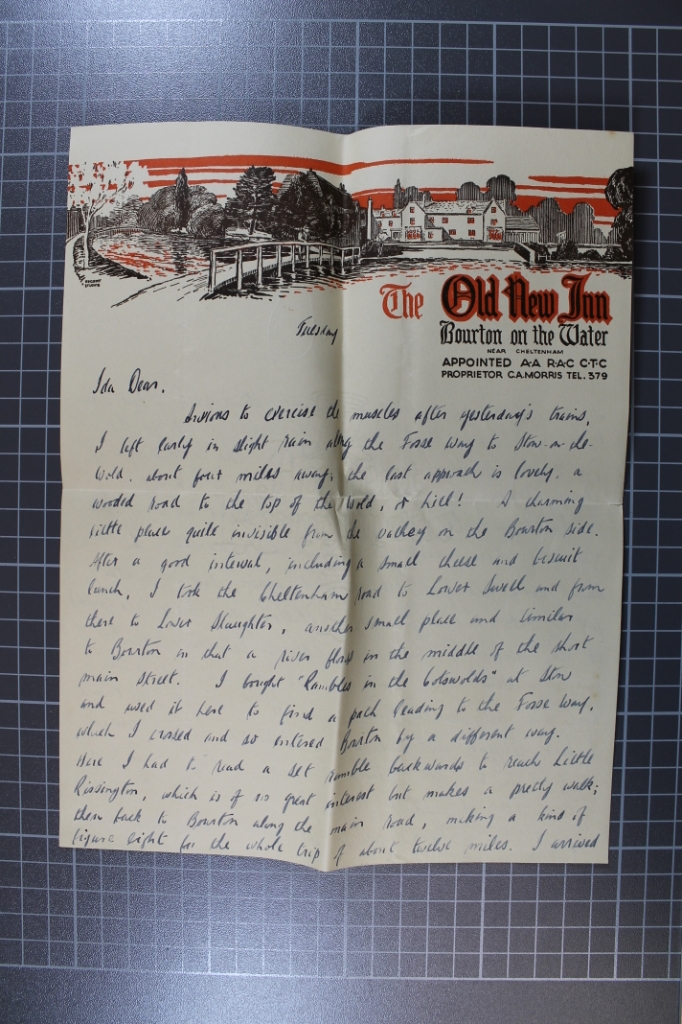 REGENT
STUDIO
The Old New Inn
Bourton on the Water
NEAR CHELTENHAM
APPOINTED A·A R·A·C C·T·C
PROPRIETOR C.A.MORRIS TEL. 379
Tuesday
Ida Dear.
Anxious to exercise the muscles after yesterday's trains,
I left early in slight rain along the Fosse Way to Stow-on-the-
Wold. about four miles away; the last approach is lovely, a
wooded road to the top of the Wold, or hill! A charming
little place quite invisible from the valley on the Bourton side.
After a good interval, including a small cheese and biscuit
lunch, I took the Cheltenham road to Lower Swell and from
there to Lower Slaughter, another small place and similar
to Bourton in that a river flows in the middle of the short
main street. I bought "Rambles in the Cotswolds" at Stow
and used it here to find a path leading to the Fosse Way,
which I crossed and so entered Bourton by a different way.
Here I had to read a set ramble backwards to reach Little
Rissington, which is of no great interest but makes a pretty walk;
then back to Bourton along the main road, making a kind of
figure eight for the whole trip of about twelve miles. I arrived